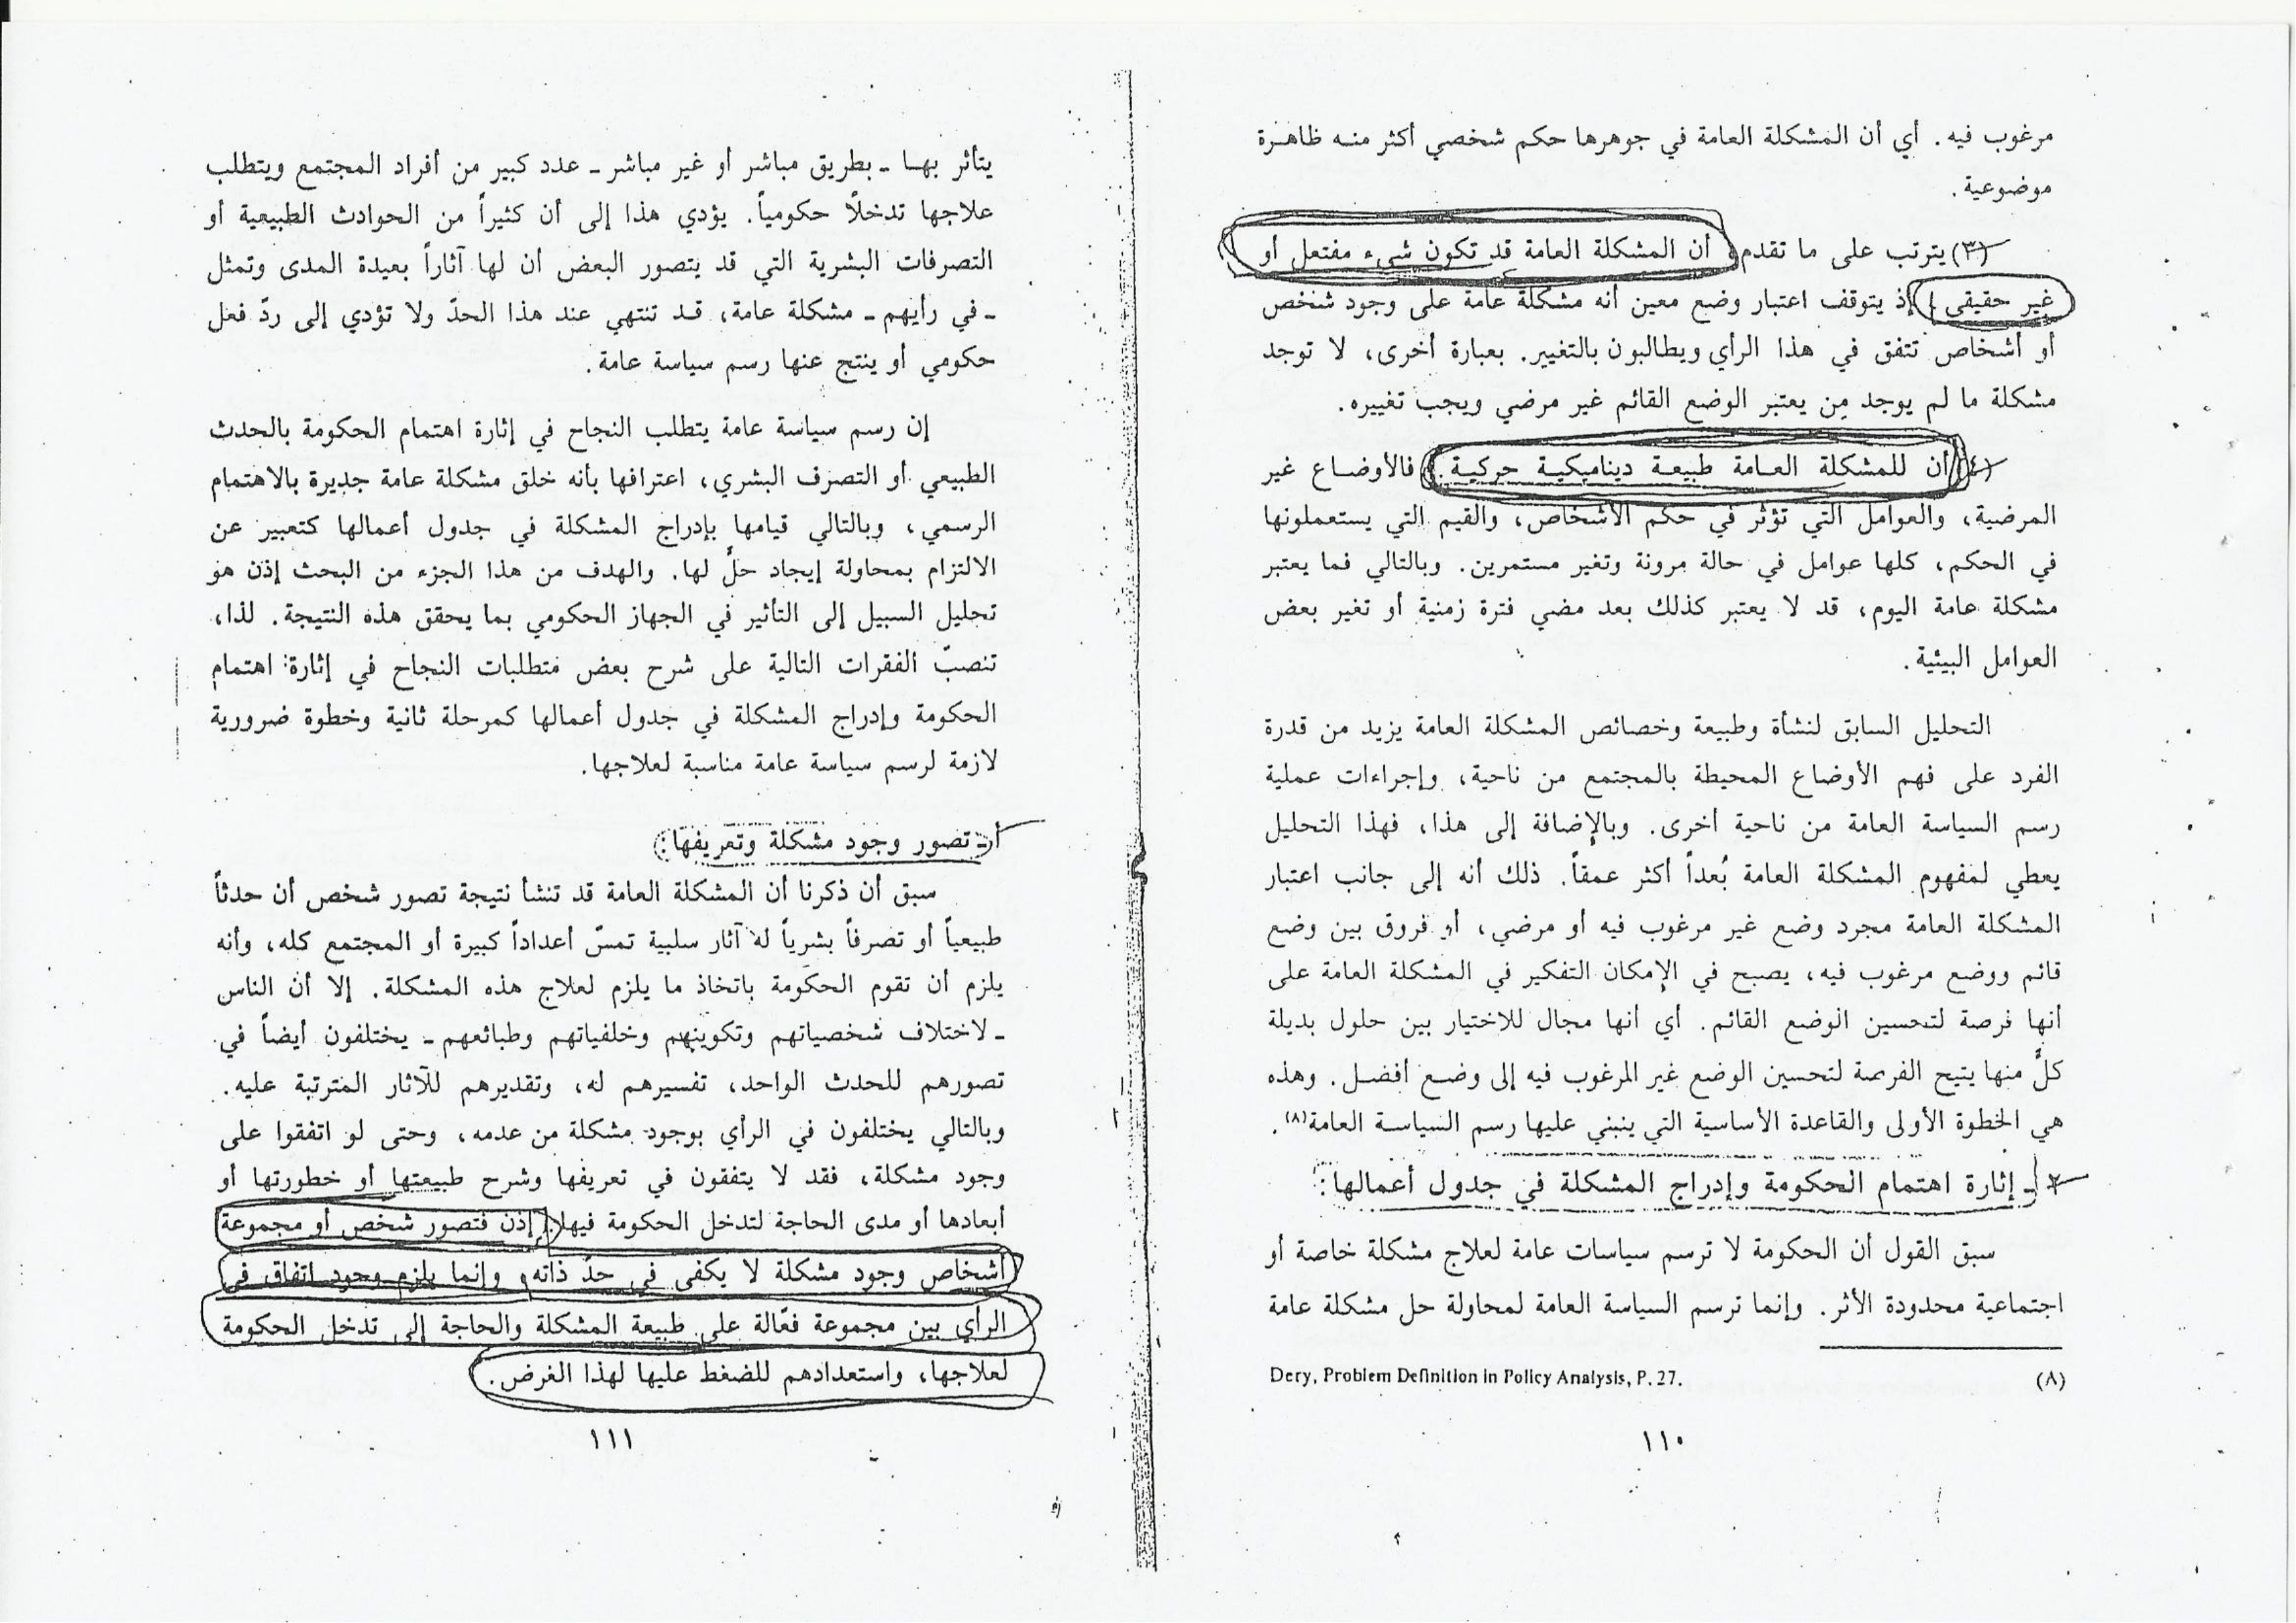 مرغوب فيه. أي أن المشكلة العامة في جوهرها حكم شخصي أكثر منه ظاهرة
موضوعية.
(٣) يترتب على ما تقدم أن المشكلة العامة قد تكون شيء مفتعل أو
غير حقيقي إذ يتوقف اعتبار وضع معين أنه مشكلة عامة على وجود شخص
أو أشخاص تتفق في هذا الرأي ويطالبون بالتغيير. بعبارة أخرى، لا توجد
مشكلة ما لم يوجد من يعتبر الوضع القائم غير مرضي ويجب تغييره.
(٤) أن للمشكلة العامة طبيعة ديناميكية حركية. فالأوضاع غير
المرضية، والعوامل التي تؤثر في حكم الأشخاص، والقيم التي يستعملونها
في الحكم، كلها عوامل في حالة مرونة وتغير مستمرين. وبالتالي فما يعتبر
مشكلة عامة اليوم، قد لا يعتبر كذلك بعد مضي فترة زمنية أو تغير بعض
العوامل البيئية.
التحليل السابق لنشأة وطبيعة وخصائص المشكلة العامة يزيد من قدرة
الفرد على فهم الأوضاع المحيطة بالمجتمع من ناحية، وإجراءات عملية
رسم السياسة العامة من ناحية أخرى. وبالإضافة إلى هذا، فهذا التحليل
يعطي لمفهوم المشكلة العامة بُعداً أكثر عمقاً. ذلك أنه إلى جانب اعتبار
المشكلة العامة مجرد وضع غير مرغوب فيه أو مرضي، أو فروق بين وضع
قائم ووضع مرغوب فيه، يصبح في الإمكان التفكير في المشكلة العامة على
أنها فرصة لتحسين الوضع القائم. أي أنها مجال للاختيار بين حلول بديلة
كلٌّ منها يتيح الفرصة لتحسين الوضع غير المرغوب فيه إلى وضع أفضل. وهذه
هي الخطوة الأولى والقاعدة الأساسية التي ينبني عليها رسم السياسة العامة(٨).
٢ - إثارة اهتمام الحكومة وإدراج المشكلة في جدول أعمالها:
سبق القول أن الحكومة لا ترسم سياسات عامة لعلاج مشكلة خاصة أو
اجتماعية محدودة الأثر. وإنما ترسم السياسة العامة لمحاولة حل مشكلة عامة
(٨) Dery, Problem Definition in Policy Analysis, P. 27.
١١٠
يتأثر بها - بطريق مباشر أو غير مباشر - عدد كبير من أفراد المجتمع ويتطلب
علاجها تدخلاً حكومياً. يؤدي هذا إلى أن كثيراً من الحوادث الطبيعية أو
التصرفات البشرية التي قد يتصور البعض أن لها آثاراً بعيدة المدى وتمثل
- في رأيهم - مشكلة عامة، قد تنتهي عند هذا الحدّ ولا تؤدي إلى ردّ فعل
حكومي أو ينتج عنها رسم سياسة عامة.
إن رسم سياسة عامة يتطلب النجاح في إثارة اهتمام الحكومة بالحدث
الطبيعي أو التصرف البشري، اعترافها بأنه خلق مشكلة عامة جديرة بالاهتمام
الرسمي، وبالتالي قيامها بإدراج المشكلة في جدول أعمالها كتعبير عن
الالتزام بمحاولة إيجاد حلٍّ لها. والهدف من هذا الجزء من البحث إذن هو
تحليل السبيل إلى التأثير في الجهاز الحكومي بما يحقق هذه النتيجة. لذا،
تنصبّ الفقرات التالية على شرح بعض متطلبات النجاح في إثارة اهتمام
الحكومة وإدراج المشكلة في جدول أعمالها كمرحلة ثانية وخطوة ضرورية
لازمة لرسم سياسة عامة مناسبة لعلاجها.
أ - تصور وجود مشكلة وتعريفها:
سبق أن ذكرنا أن المشكلة العامة قد تنشأ نتيجة تصور شخص أن حدثاً
طبيعياً أو تصرفاً بشرياً له آثار سلبية تمسّ أعداداً كبيرة أو المجتمع كله، وأنه
يلزم أن تقوم الحكومة باتخاذ ما يلزم لعلاج هذه المشكلة. إلا أن الناس
- لاختلاف شخصياتهم وتكوينهم وخلفياتهم وطبائعهم - يختلفون أيضاً في
تصورهم للحدث الواحد، تفسيرهم له، وتقديرهم للآثار المترتبة عليه.
وبالتالي يختلفون في الرأي بوجود مشكلة من عدمه، وحتى لو اتفقوا على
وجود مشكلة، فقد لا يتفقون في تعريفها وشرح طبيعتها أو خطورتها أو
أبعادها أو مدى الحاجة لتدخل الحكومة فيها. إذن فتصور شخص أو مجموعة
أشخاص وجود مشكلة لا يكفي في حدّ ذاته، وإنما يلزم وجود اتفاق في
الرأي بين مجموعة فعّالة على طبيعة المشكلة والحاجة إلى تدخل الحكومة
لعلاجها، واستعدادهم للضغط عليها لهذا الغرض.
١١١